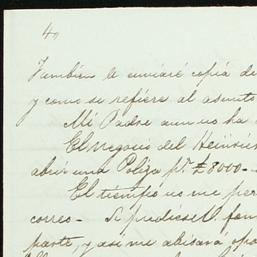 4º
Tambien le enviaré copia de
y como se refiere al asunto
Mi Padre aun no ha
El negocio del
abrir una Poliza pr. £8000 -
El tiempo no me per
correo - Si pudiese V.
parte, y asi me abisará